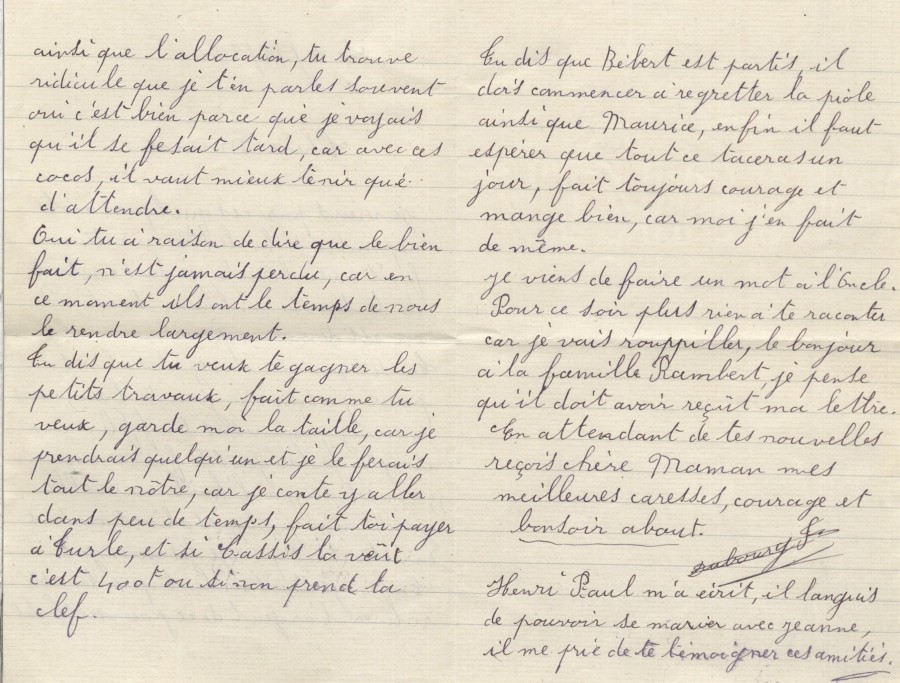 ainsi que l'allocation, tu trouve
ridicule que je t'en parles souvent
oui c'est bien parce que je voyais
qu'il se fesait tard, car avec ces
cocos, il vaut mieux tenir que
d'attendre.
Oui tu a raison de dire que le bien
fait, n'est jamais perdu, car en
ce moment ils ont le temps de nous
le rendre largement.
Tu dis que tu veux te gagner les
petits travaux, fait comme tu
veux, garde moi la taille, car je
prendrais quelqu'un et je le ferais
tout le nôtre, car je conte y aller
dans peu de temps, fait toi payer
à Turle, et si Cassis la veût
c'est 400f ou sinon prend la
clef.
Tu dis que Bébert est partis, il
dois commencer a regretter la piôle
ainsi que Maurice, enfin il faut
espérer que tout ce taceras un
jour, fait toujours courage et
mange bien, car moi j'en fait
de même.
je viens de faire un mot à l'Oncle.
Pour ce soir plus rien a te raconter
car je vais rouppiller, le bonjour
a la famille Rambert, je pense
qu'il doit avoir reçût ma lettre.
En attendant de tes nouvelles
reçois chère Maman mes
meilleures caresses, courage et
bonsoir about.
Henri Paul m'a écrit, il languis
de pouvoir se marier avec jeanne,
il me prie de te témoigner ces amitiés.